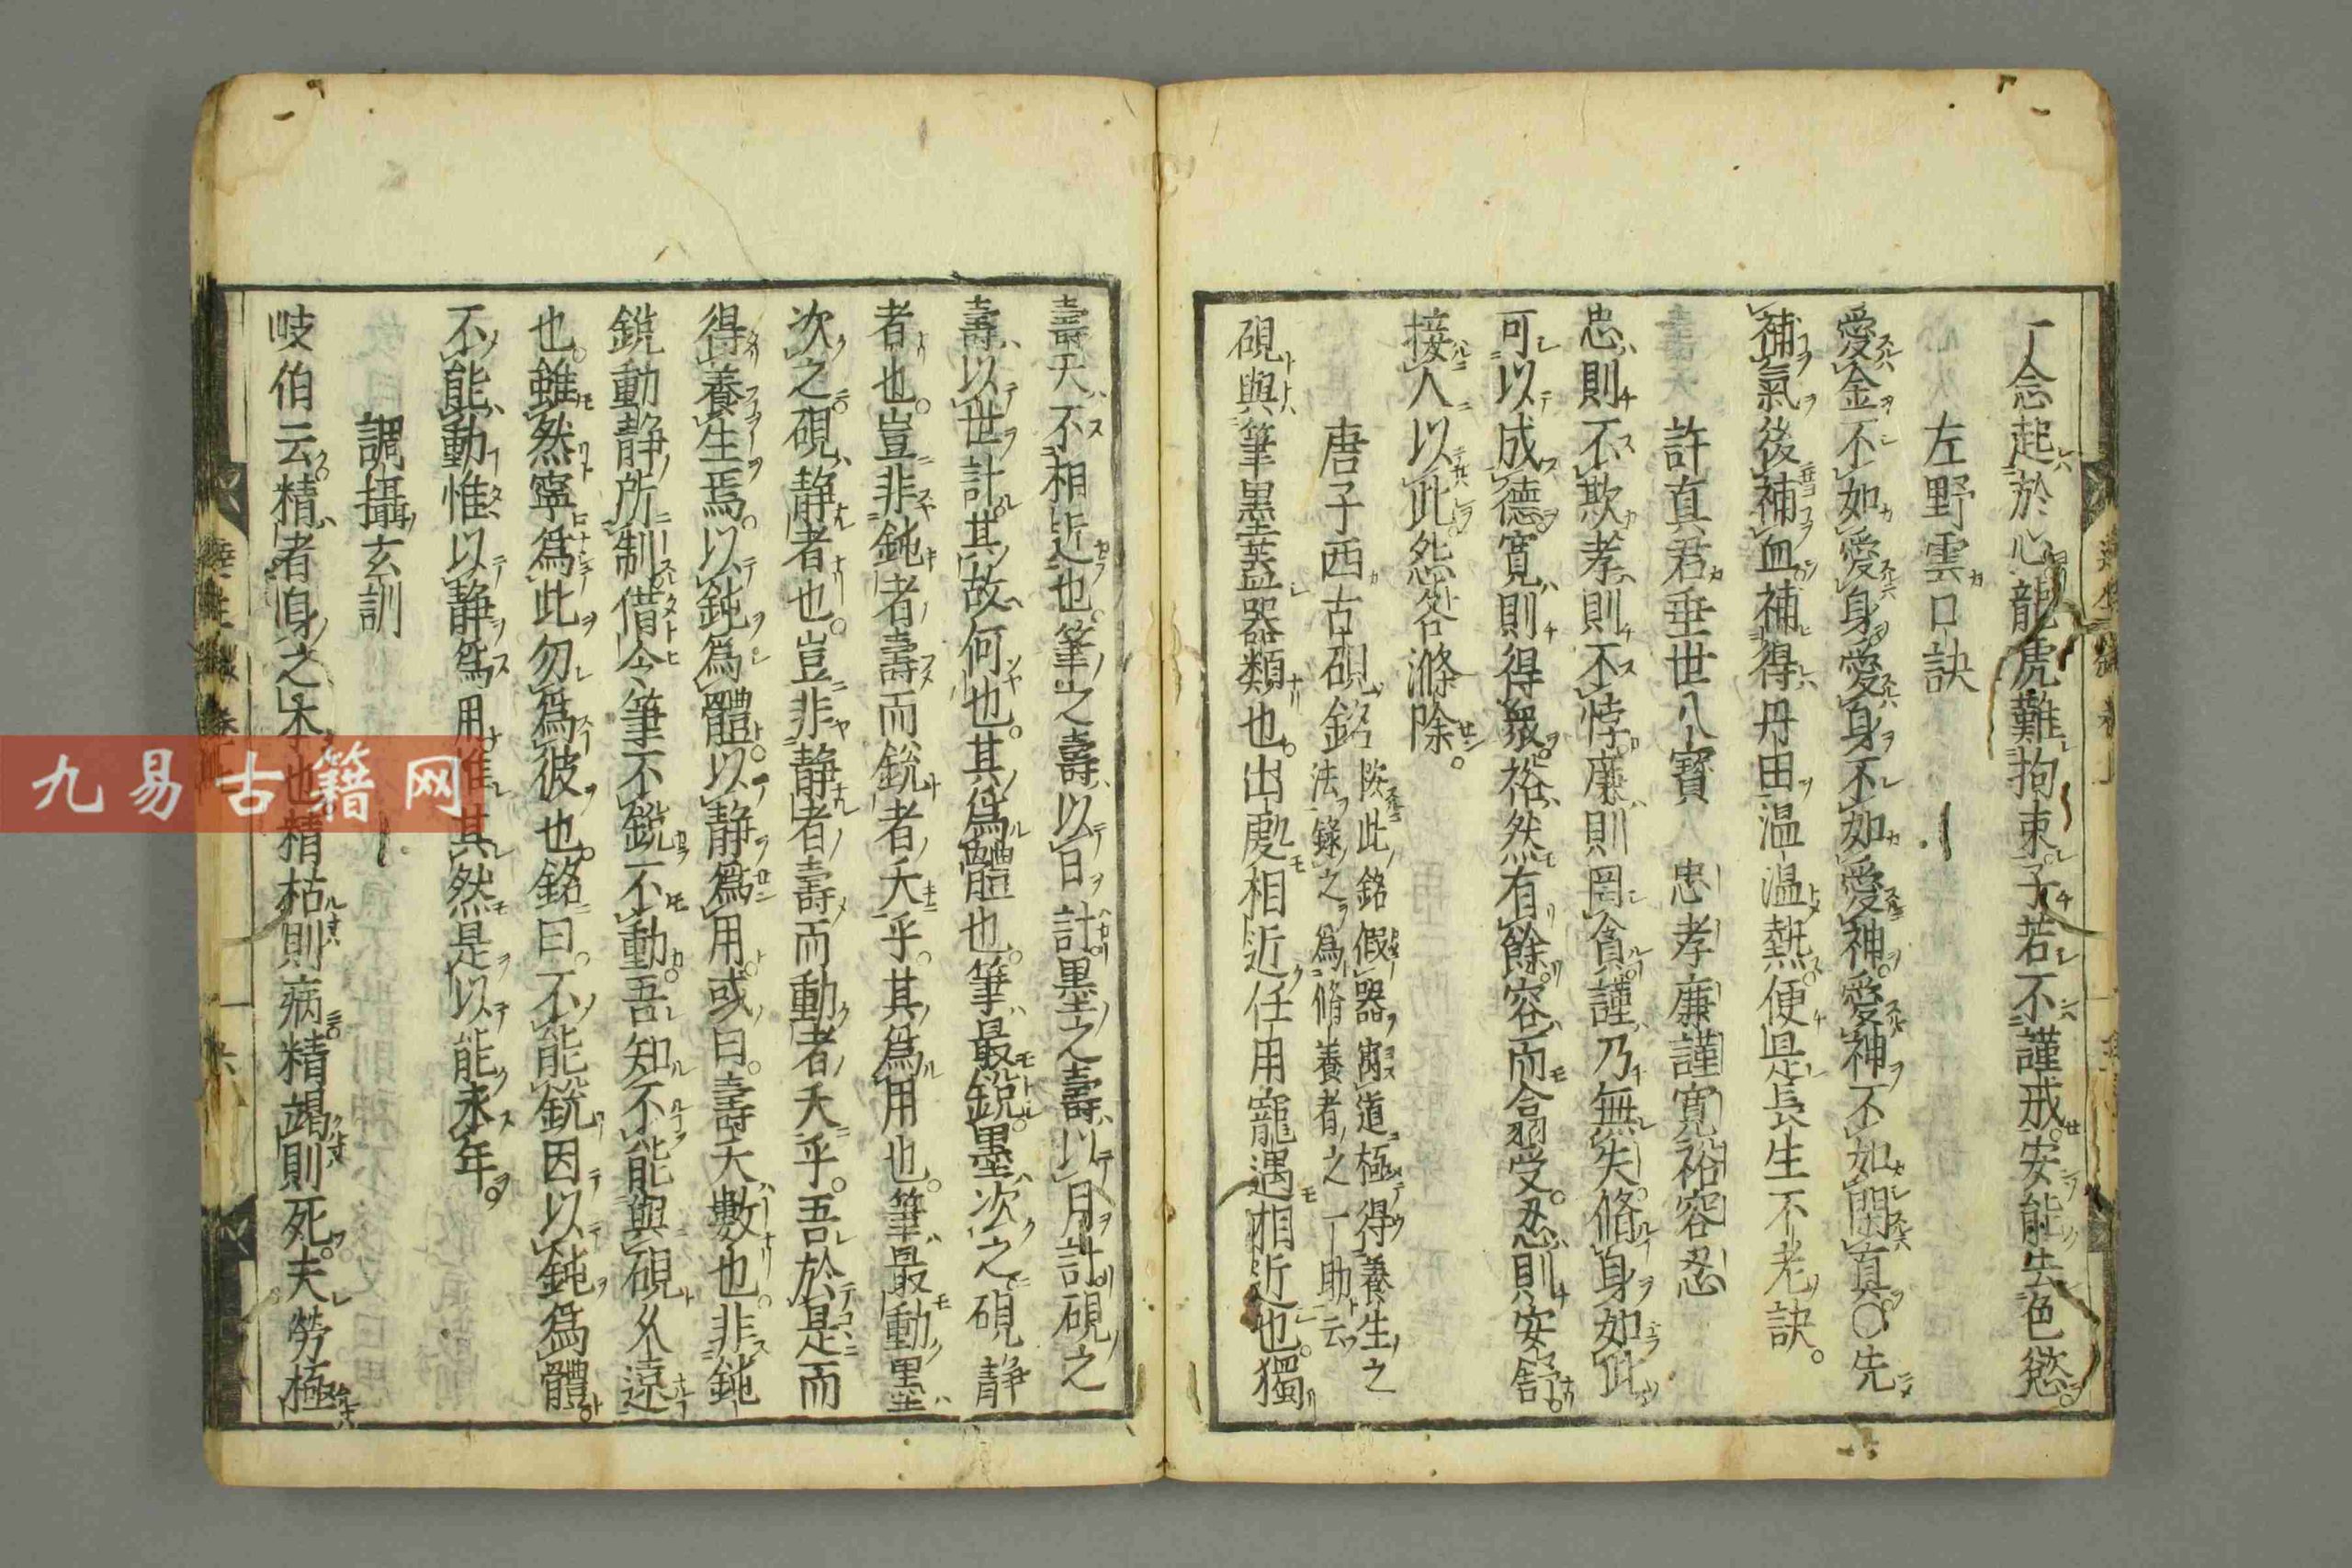 一念起於心龍虎難拘束子若不謹戒安能去色慾
左野雲口訣
愛金不如愛身愛身不如愛神愛神不如閉真〇先
補氣後補血補得丹田温温熱便是長生不老訣。
許真君垂世八寶 忠孝廉謹寬裕容忍
忠則不欺孝則不悖廉則罔貪謹乃無失脩身如此
可以成德寬則得衆裕然有餘容而翕受忍則安舍
接人以此怨咎滌除。
唐子西古硯銘 陔此銘假器寓道極得養生之
法錄之為脩養者之一助云
硯與筆墨蓋器類也出處相近任用寵遇相近也獨
壽夭不相近也筆之壽以日計墨之壽以月計硯之
壽以世計其故何也其爲體也筆最鋭墨次之硯静
者也豈非鈍者壽而鋭者夭乎其爲用也筆最動墨
次之硯静者也豈非静者壽而動者夭乎吾於是而
得養生焉以鈍爲體以静爲用或曰壽夭數也非鈍
鋭動静所制借令筆不鋭不動吾知不能與硯久遠
也雖然寧爲此勿爲彼也銘曰不能鋭因以鈍爲體
不能動惟以静爲用惟其然是以能永年。
調攝玄訓
岐伯云精者身之本也精枯則病精竭則死夫勞極
九易古籍网